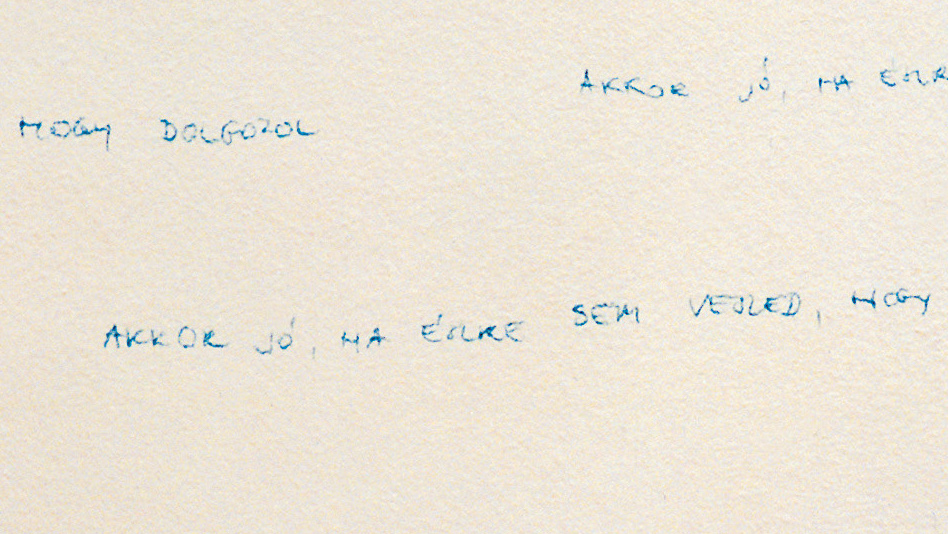 AKKOR JÓ, HA ÉSZR
HOGY DOLGOZOL
AKKOR JÓ, HA ÉSZRE SEM VESZED, HOGY